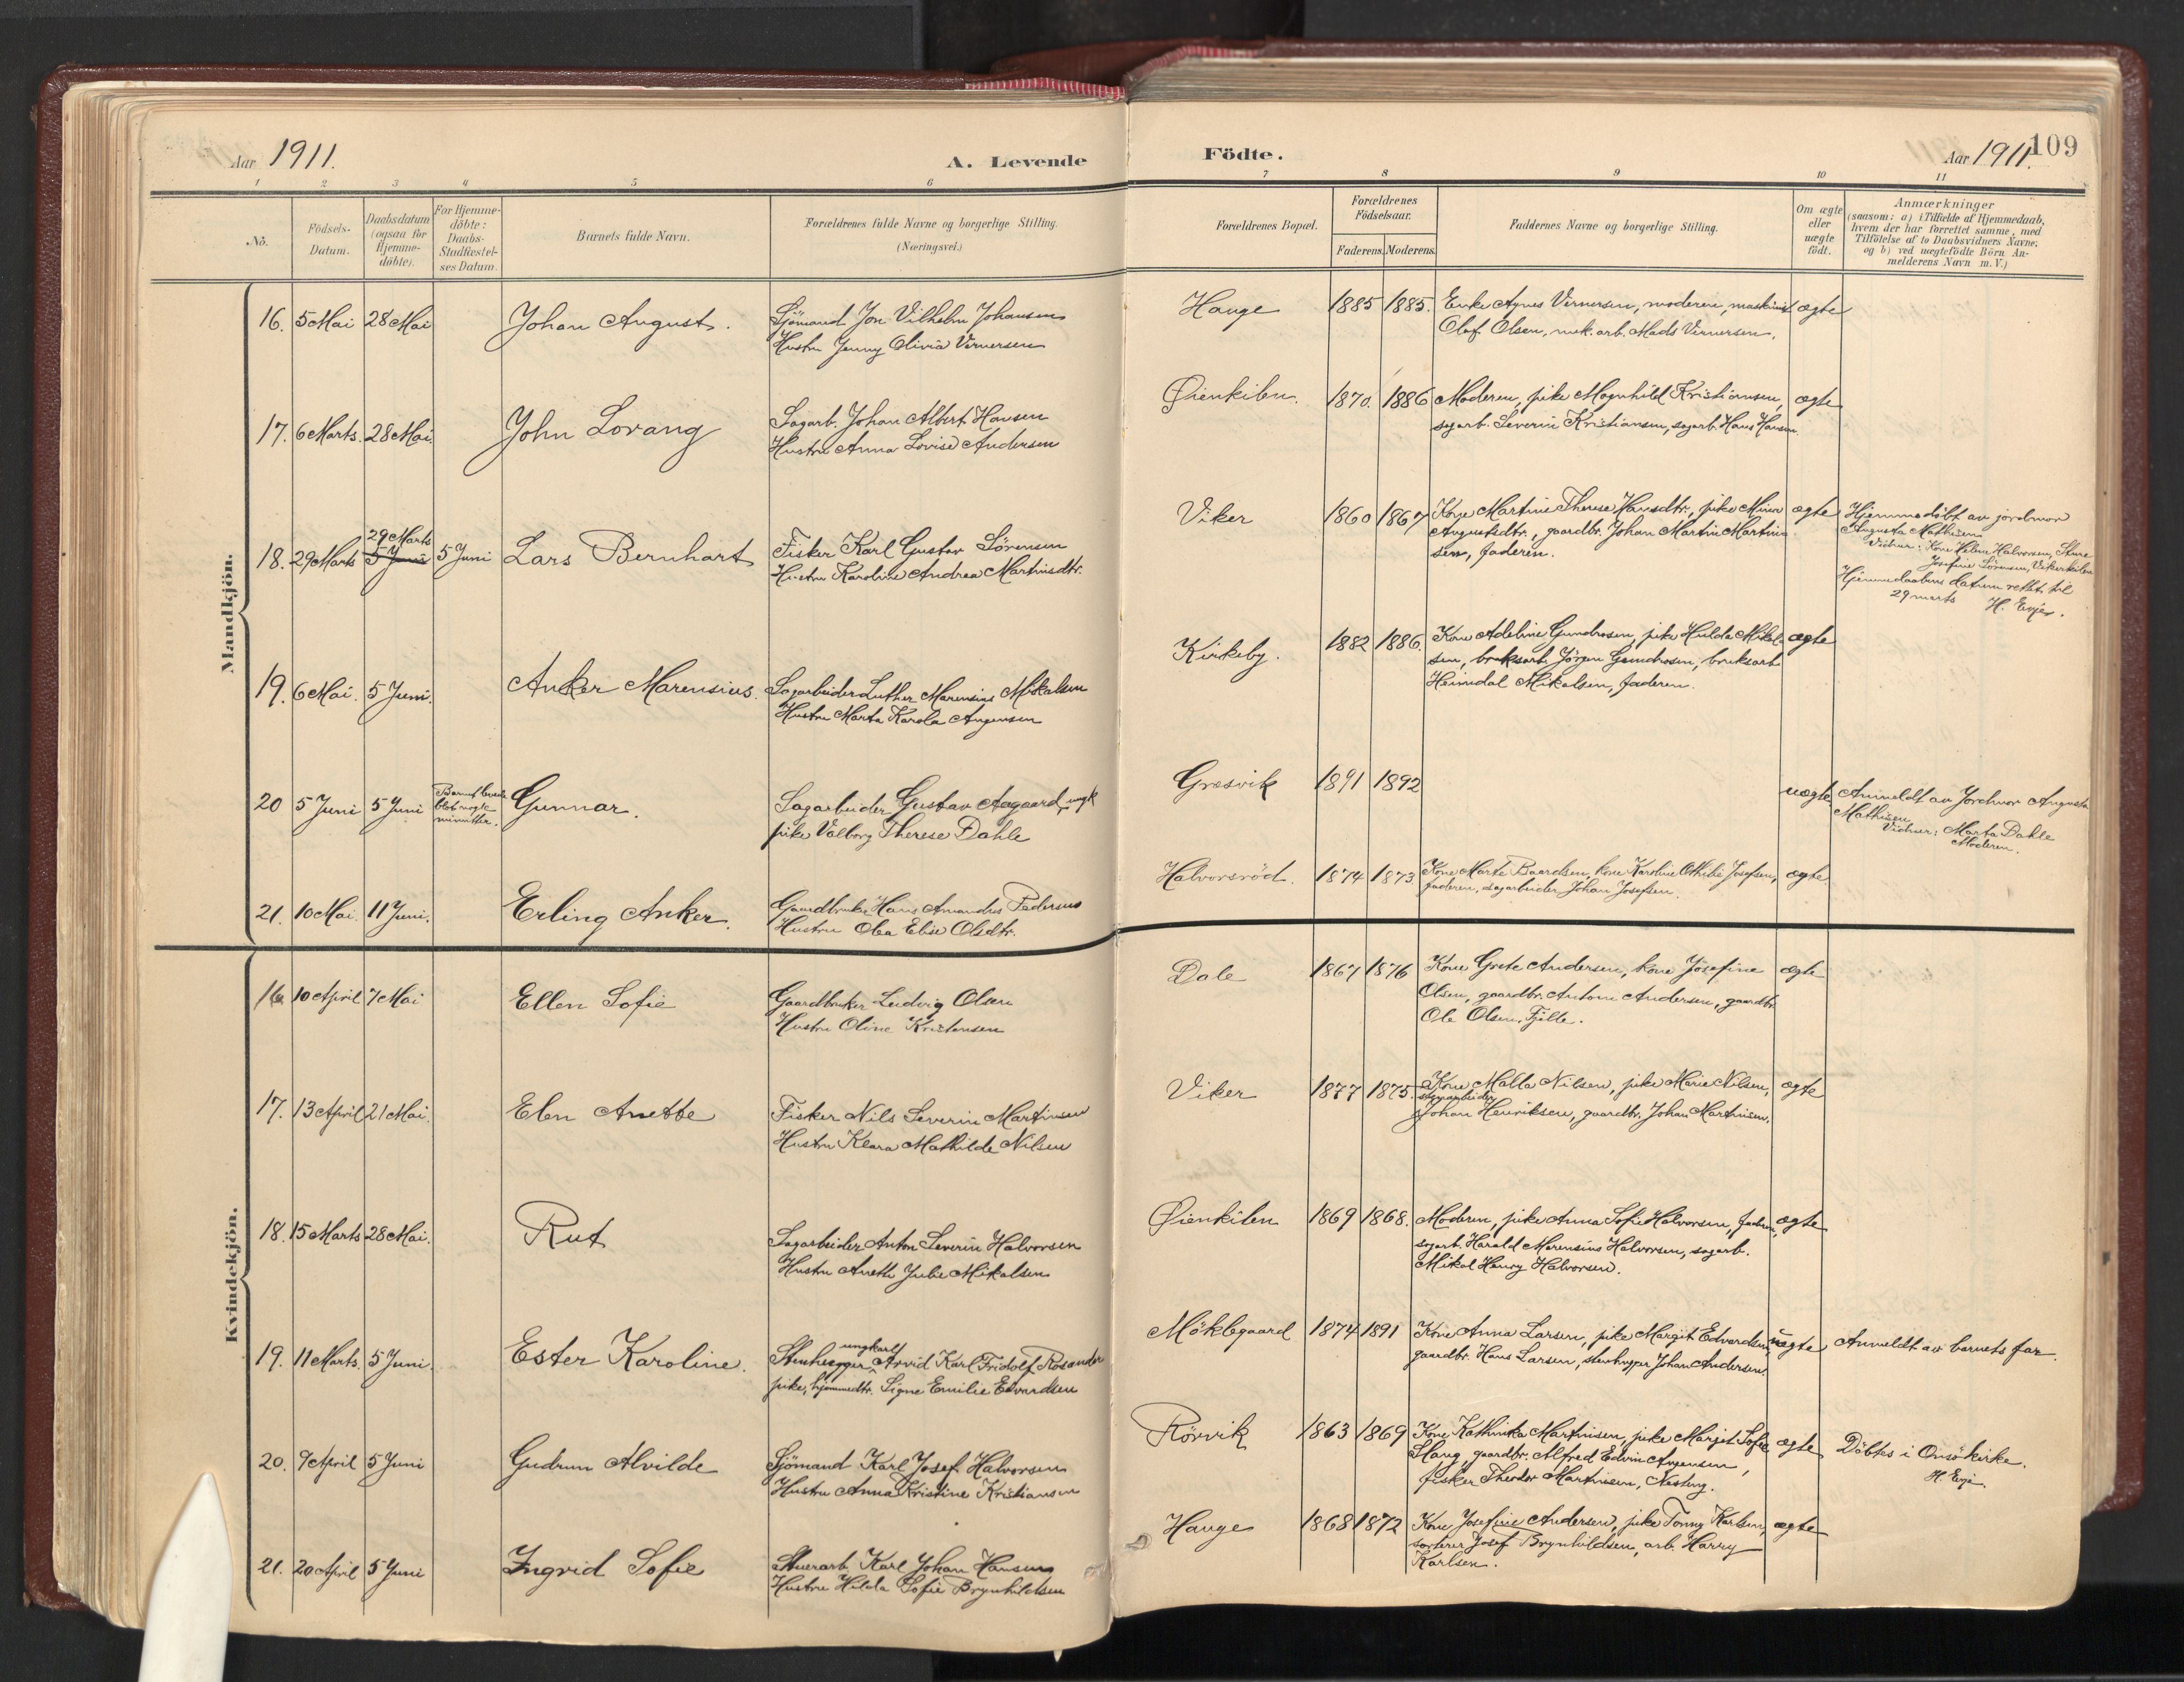 Aar 1911.
A. Levende
Födte.
Aar 1911.
109
1 2 3 4 5 6 7 8 9 10 11
Nö.
Födsels-
Datum.
Daabsdatum
(ogsaa for
Hjemme-
döbte).
For Hjemme-
döbte:
Daabs-
Stadfæstel-
ses Datum.
Barnets fulde Navn.
Forældrenes fulde Navne og borgerlige Stilling.
(Næringsvei.)
Forældrenes Bopæl.
Forældrenes
Födselsaar.
Faderens. Moderens.
Faddernes Navne og borgerlige Stilling.
Om ægte
eller
uægte
födt.
Anmærkninger
(saasom: a) i Tilfælde af Hjemmedaab,
hvem der har forrettet samme, med
Tilföielse af to Daabsvidners Navne;
og b) ved uægtefödte Börn An-
melderens Navn m. V.)
Mandkjön.
16. 5 Mai 28 Mai Johan August.
Sjömand Jon Vilhelm Johansen
Hustru Jenny Olivia Vernersen
Hauge 1885 1885.
Enke Agnes Vernersen, moderen, maskinist
Olaf Olsen, mek. arb. Mads Vernersen.
ægte
17. 6 Marts. 28 Mai. John Lorang
Sagarb. Johan Albert Hansen
Hustru Anna Lovise Andersen
Øienkilen. 1870. 1886
Moderen, pike Magnhild Kristiansen,
sagarb. Severin Kristiansen, sagarb. Hans Hansen.
ægte
18. 29 Marts 29 Marts
5 Juni 5 Juni Lars Bernhart
Fisker Karl Gustav Sörensen
Hustru Karoline Andrea Martinsdtr.
Viker 1860 1867
Kone Martine Therese Hansdtr., pike Mina
Augustsdtr., gaardbr. Johan Martin Martin-
sen, faderen.
ægte
Hjemmedöbt av jordmor
Augusta Mathisen
Vidner: Kone Helene Halvorsen, Stene
Josefine Sörensen, Vikerkilen
Hjemmedaabens datum rettet til
29 marts H. Evje.
19. 6 Mai. 5 Juni. Anker Marensius.
Sagarbeider Luther Marensius Mikalsen
Hustru Marta Karola Angensen
Kirkeby. 1882 1886.
Kone Adeline Gundrosen, pike Hulda Mikal-
sen, bruksarb. Jörgen Gundrosen, bruksarb.
Heimdal Mikalsen, faderen.
ægte
20 5 Juni 5 Juni Barnet levede
blot nogle
minutter.
Gunnar.
Sagarbeider Gustav Aagaard, ungk
pike Valborg Therese Dahle
Gresvik 1891 1892
uægte
Anmeldt av Jordmor Augusta
Mathisen
Vidner: Marta Dahle
Moderen.
21. 10 Mai. 11 Juni. Erling Anker.
Gaardbruker Hans Amandus Pedersen
Hustru Olea Elise Olsdtr.
Halvorsröd. 1874 1873.
Kone Marte Baardsen, kone Karoline Othilie Josefsen,
faderen, sagarbeider Johan Josefsen.
ægte.
Kvindekjön.
16 10 April 7 Mai Ellen Sofie
Gaardbruker Ludvig Olsen
Hustru Oline Kristensen
Dale 1867 1876
Kone Grete Andersen, kone Josefine
Olsen, gaardbr. Anton Andersen, gaardbr.
Ole Olsen, Fjelle.
ægte
17. 13 April 21 Mai. Elen Anette
Fisker Nils Severin Martinsen
Hustru Klara Mathilde Nilsen
Viker 1877 1875.
Kone Malla Nilsen, pike Marie Nilsen,
Johan Henriksen, gaardbr. Johan Martinsen.
ægte
18. 15 Marts 28 Mai. Rut
Sagarbeider Anton Severin Halvorsen
Hustru Anette Julie Mikalsen
Øienkilen 1869 1868.
Moderen, pike Anna Sofie Halvorsen, faderen,
sagarb. Harald Marensius Halvorsen, sagarb.
Mikal Henry Halvorsen.
ægte
19. 11 Marts. 5 Juni. Ester Karoline.
ungkarl
Stenhugger Arvid Karl Fridolf Rosander
pike, hjemmedtr. Signe Emilie Edvardsen
Möklegaard 1874 1891
Kone Anna Larsen, pike Margit Edvardsen,
gaardbr. Hans Larsen, stenhugger Johan Andersen.
uægte
Anmeldt av barnets far.
20. 9 April 5 Juni Gudrun Alvilde
Sjömand Karl Josef Halvorsen
Hustru Anna Kristine Kristiansen
Rörvik 1863 1869
Kone Kathinka Martinsen, pike Margit Sofie
Slang, gaardbr. Alfred Edvin Angensen,
fisker Theodor Martinsen,
ægte
Döbtes i Onsö kirke.
H. Evje.
21. 20 April 5 Juni Ingrid Sofie
Karl Johan Hansen
Hustru Hilda Sofie Brynhildsen
Hauge 1868 1872
Kone Josefine Andersen, pike Fonny Karlsen,
sorterer Josef Brynhildsen, arb. Harry
Karlsen.
ægte